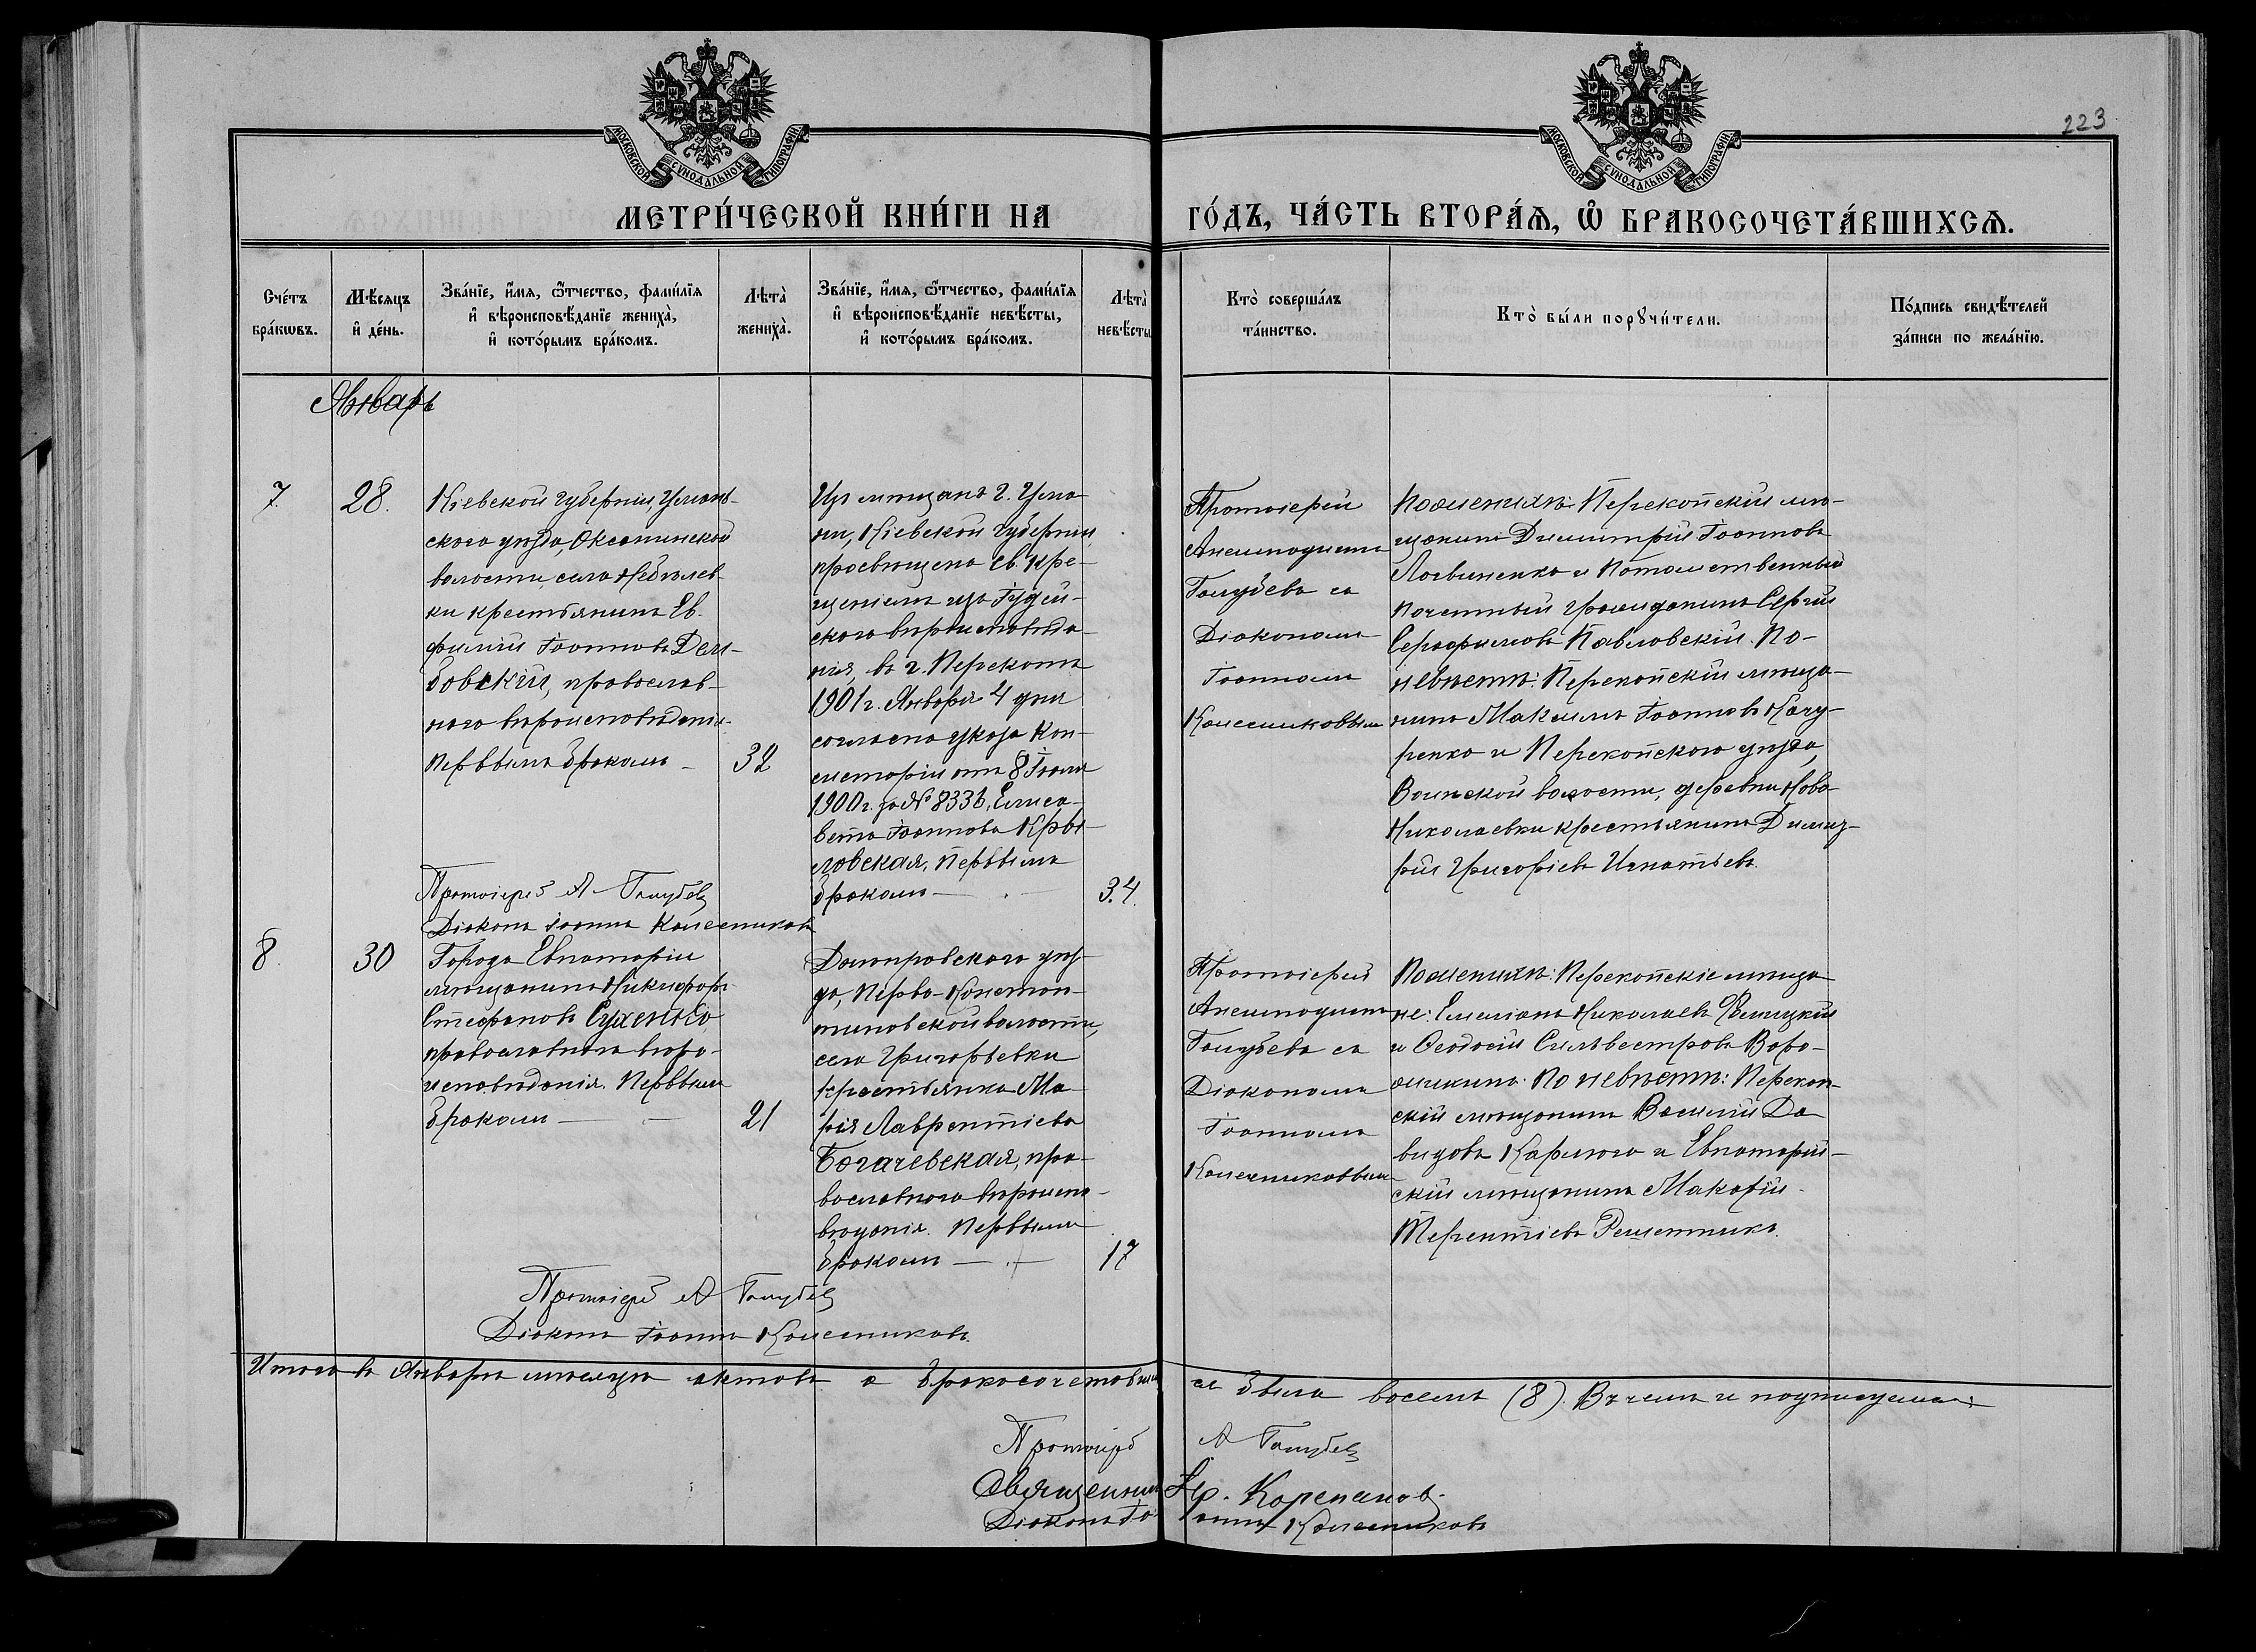 МОСКОВСКОЙ СѴНОДАЛЬНОЙ ТИПОГРАФІИ
МОСКОВСКОЙ СѴНОДАЛЬНОЙ ТИПОГРАФІИ
223
МЕТРИ́ЧЕСКОЙ КНИ́ГИ НА
ГО́ДЪ, ЧА́СТЬ ВТОРА́Ѧ, Ѡ҆ БРАКОСОЧЕТА́ВШИХСѦ.
Сче́тъ
бра́кѡвъ.
Мѣ́сяцъ
и҆ де́нь.
Зва́нїе, и҆́мя, ѻ҆́тчество, фами́лїя
и҆ вѣроисповѣ́данїе жениха̀,
и҆ кото́рымъ бра́комъ.
Лѣта̀
жениха̀.
Зва́нїе, и҆́мя, ѻ҆́тчество, фами́лїя
и҆ вѣроисповѣ́данїе невѣ́сты,
и҆ кото́рымъ бра́комъ.
Лѣта̀
невѣ́сты
Кто̀ соверша́лъ
та́инство.
Кто̀ бы́ли порꙋчи́тели.
По́дпись свидѣ́телей
за́писи по жела́нїю.
Январь
7.
28.
Кіевской губерніи, Уман-
скаго уѣзда, Оксанинской
волости, села Небѣлев-
ки крестьянинъ Ев-
фимій Іоанновъ Дем-
бовскій, православ-
наго вѣроисповѣданія.
Первымъ бракомъ
32
Изъ мѣщанъ г. Ума-
ни, Кіевской губерніи,
просвѣщена св. кре-
щеніемъ изъ Іудей-
скаго вѣроисповѣда-
нія, въ г. Перекопѣ
1901 г. Января 4 дня
согласно указа Кон-
систоріи отъ 8 Іюля
1900 г. за № 8336, Елиса-
вета Іоаннова Кры-
ловская, Первымъ
бракомъ
34.
Протоіерей
Анемподистъ
Голубевъ съ
Діакономъ
Іоанномъ
Колесниковымъ
По женихѣ: Перекопскій мѣ-
щанинъ Димитрій Іоанновъ
Логвиненко и Потомственный
почетный гражданинъ Сергій
Серафимовъ Павловскій. По
невѣстѣ: Перекопскій мѣща-
нинъ Максимъ Іоанновъ Качу-
ренко и Перекопскаго уѣзда,
Воинской волости, деревни Ново-
Николаевки крестьянинъ Димит-
рій Григорьевъ Игнатьевъ.
Протоіерей А Голубевъ
Діаконъ Іоаннъ Колесниковъ
8.
30
Города Евпаторіи
мѣщанинъ Никифоръ
Стефановъ Сухенко
православнаго вѣро-
исповѣданія. Первымъ
бракомъ
21
Днѣпровскаго уѣз-
да, Перво-Констан-
тиновской волости,
села Григорьевки
крестьянка Ма-
рія Лаврентіева
Богачевская, пра-
вославнаго вѣроиспо-
вѣданія. Первымъ
бракомъ
17
Протоіерей
Анемподистъ
Голубевъ съ
Діакономъ
Іоанномъ
Колесниковымъ
По женихѣ: Перекопскіе мѣща-
не: Емеліанъ Николаевъ
и Ѳеодосій Сильвестровъ
По невѣстѣ: Перекоп-
скій мѣщанинъ Василій Да-
видовъ и Евпаторій-
скій мѣщанинъ Макарій
Терентіевъ Решетникъ.
Протоіерей А Голубевъ
Діаконъ Іоаннъ Колесниковъ.
Итого въ Январѣ мѣсяцѣ актовъ о бракосочетавших ся было восемь (8). Въ чемъ и подписуемся:
Протоіерей А Голубевъ
Священникъ Корепанов
Діаконъ Іоаннъ Колесниковъ